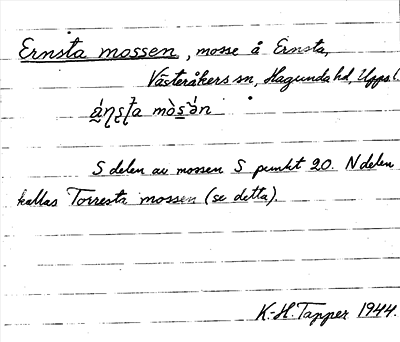 Ernsta mossen, mosse å Ernsta,
Västeråkers sn, Hagunda hd, Upps l.
S delen av mossen S punkt 20. N delen
kallas Torresta mossen (se detta).
K.-H. Tapper 1944.